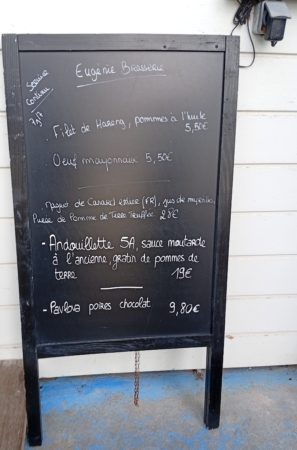 Eugénie Brasserie
Service
Continu
7j/7
- Filet de Hareng, pommes à l'huile
5,50€
- Oeuf mayonnaise 5,50€
Magret de Canard entier (FR), jus de
Purée de Pomme de Terre Truffée 28€
- Andouillette 5A, sauce moutarde
à l'ancienne, gratin de pommes de
terre 19€
- Pavlova poires chocolat 9,80€